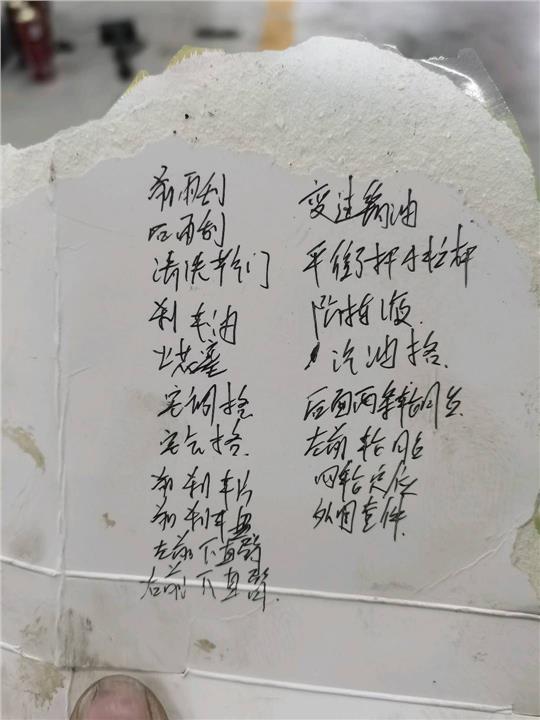 前雨刮
后雨刮
清洗节气门
刹车油
火花塞
空调格
空气格
前刹车片
前刹车盘
左前下直臂
右前下直臂
变速箱油
平衡杆小拉杆
防冻液
汽油格
后面两条轮胎
左前轮
四轮定位
外周套件